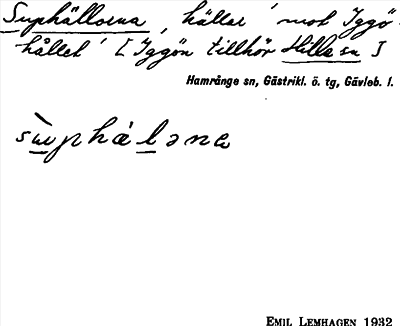 Suphällorna, hällar 'mot Iggö-
hållet' [Iggön tillhör Hille sn]
Hamrånge sn, Gästrikl. ö. tg, Gävleb. l.
EMIL LEMHAGEN 1932